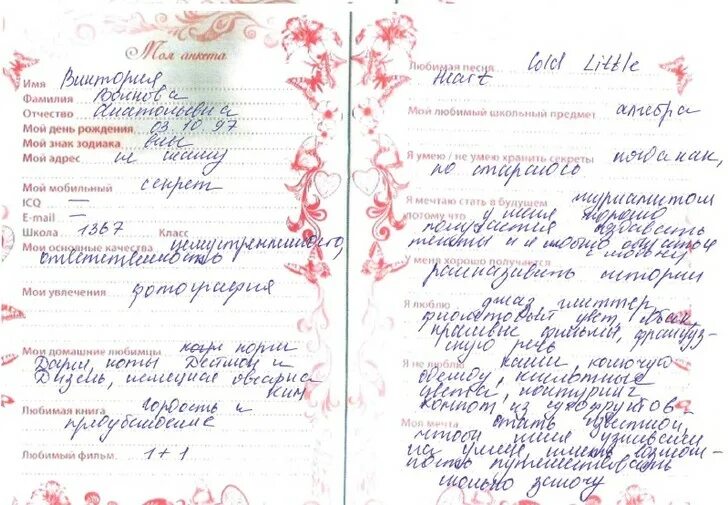 Моя анкета
Имя Виктория
Фамилия Воинова
Отчество Анатольевна
Мой день рождения 03.10.97
Мой знак зодиака весы
Мой адрес не скажу
Мой мобильный секрет
ICQ —
E-mail —
Школа 1367 Класс
Мои основные качества целеустремленность,
ответственность
Мои увлечения фотография
Мои домашние любимцы корги
Дарси, коты Дестини и
Дизель, немецкая овчарка
Ким
Любимая книга гордость и
предубеждение
Любимый фильм 1+1
Любимая песня Cold Little
Heart
Мой любимый школьный предмет алгебра
Я умею / не умею хранить секреты когда как,
но стараюсь
Я мечтаю стать в будущем журналистом
потому что у меня хорошо
получается
тексты и я люблю
У меня хорошо получается
рассказывать истории
Я люблю джаз глиттер
фиолетовый цвет
фильмы, француз-
скую речь
Я не люблю каши, колючую
одежду, кислотные
цвета, контуринг
компот из сухофруктов
Моя мечта стать известной,
чтобы меня узнавали
на улице, иметь возмож-
ность путешествовать
сколько захочу